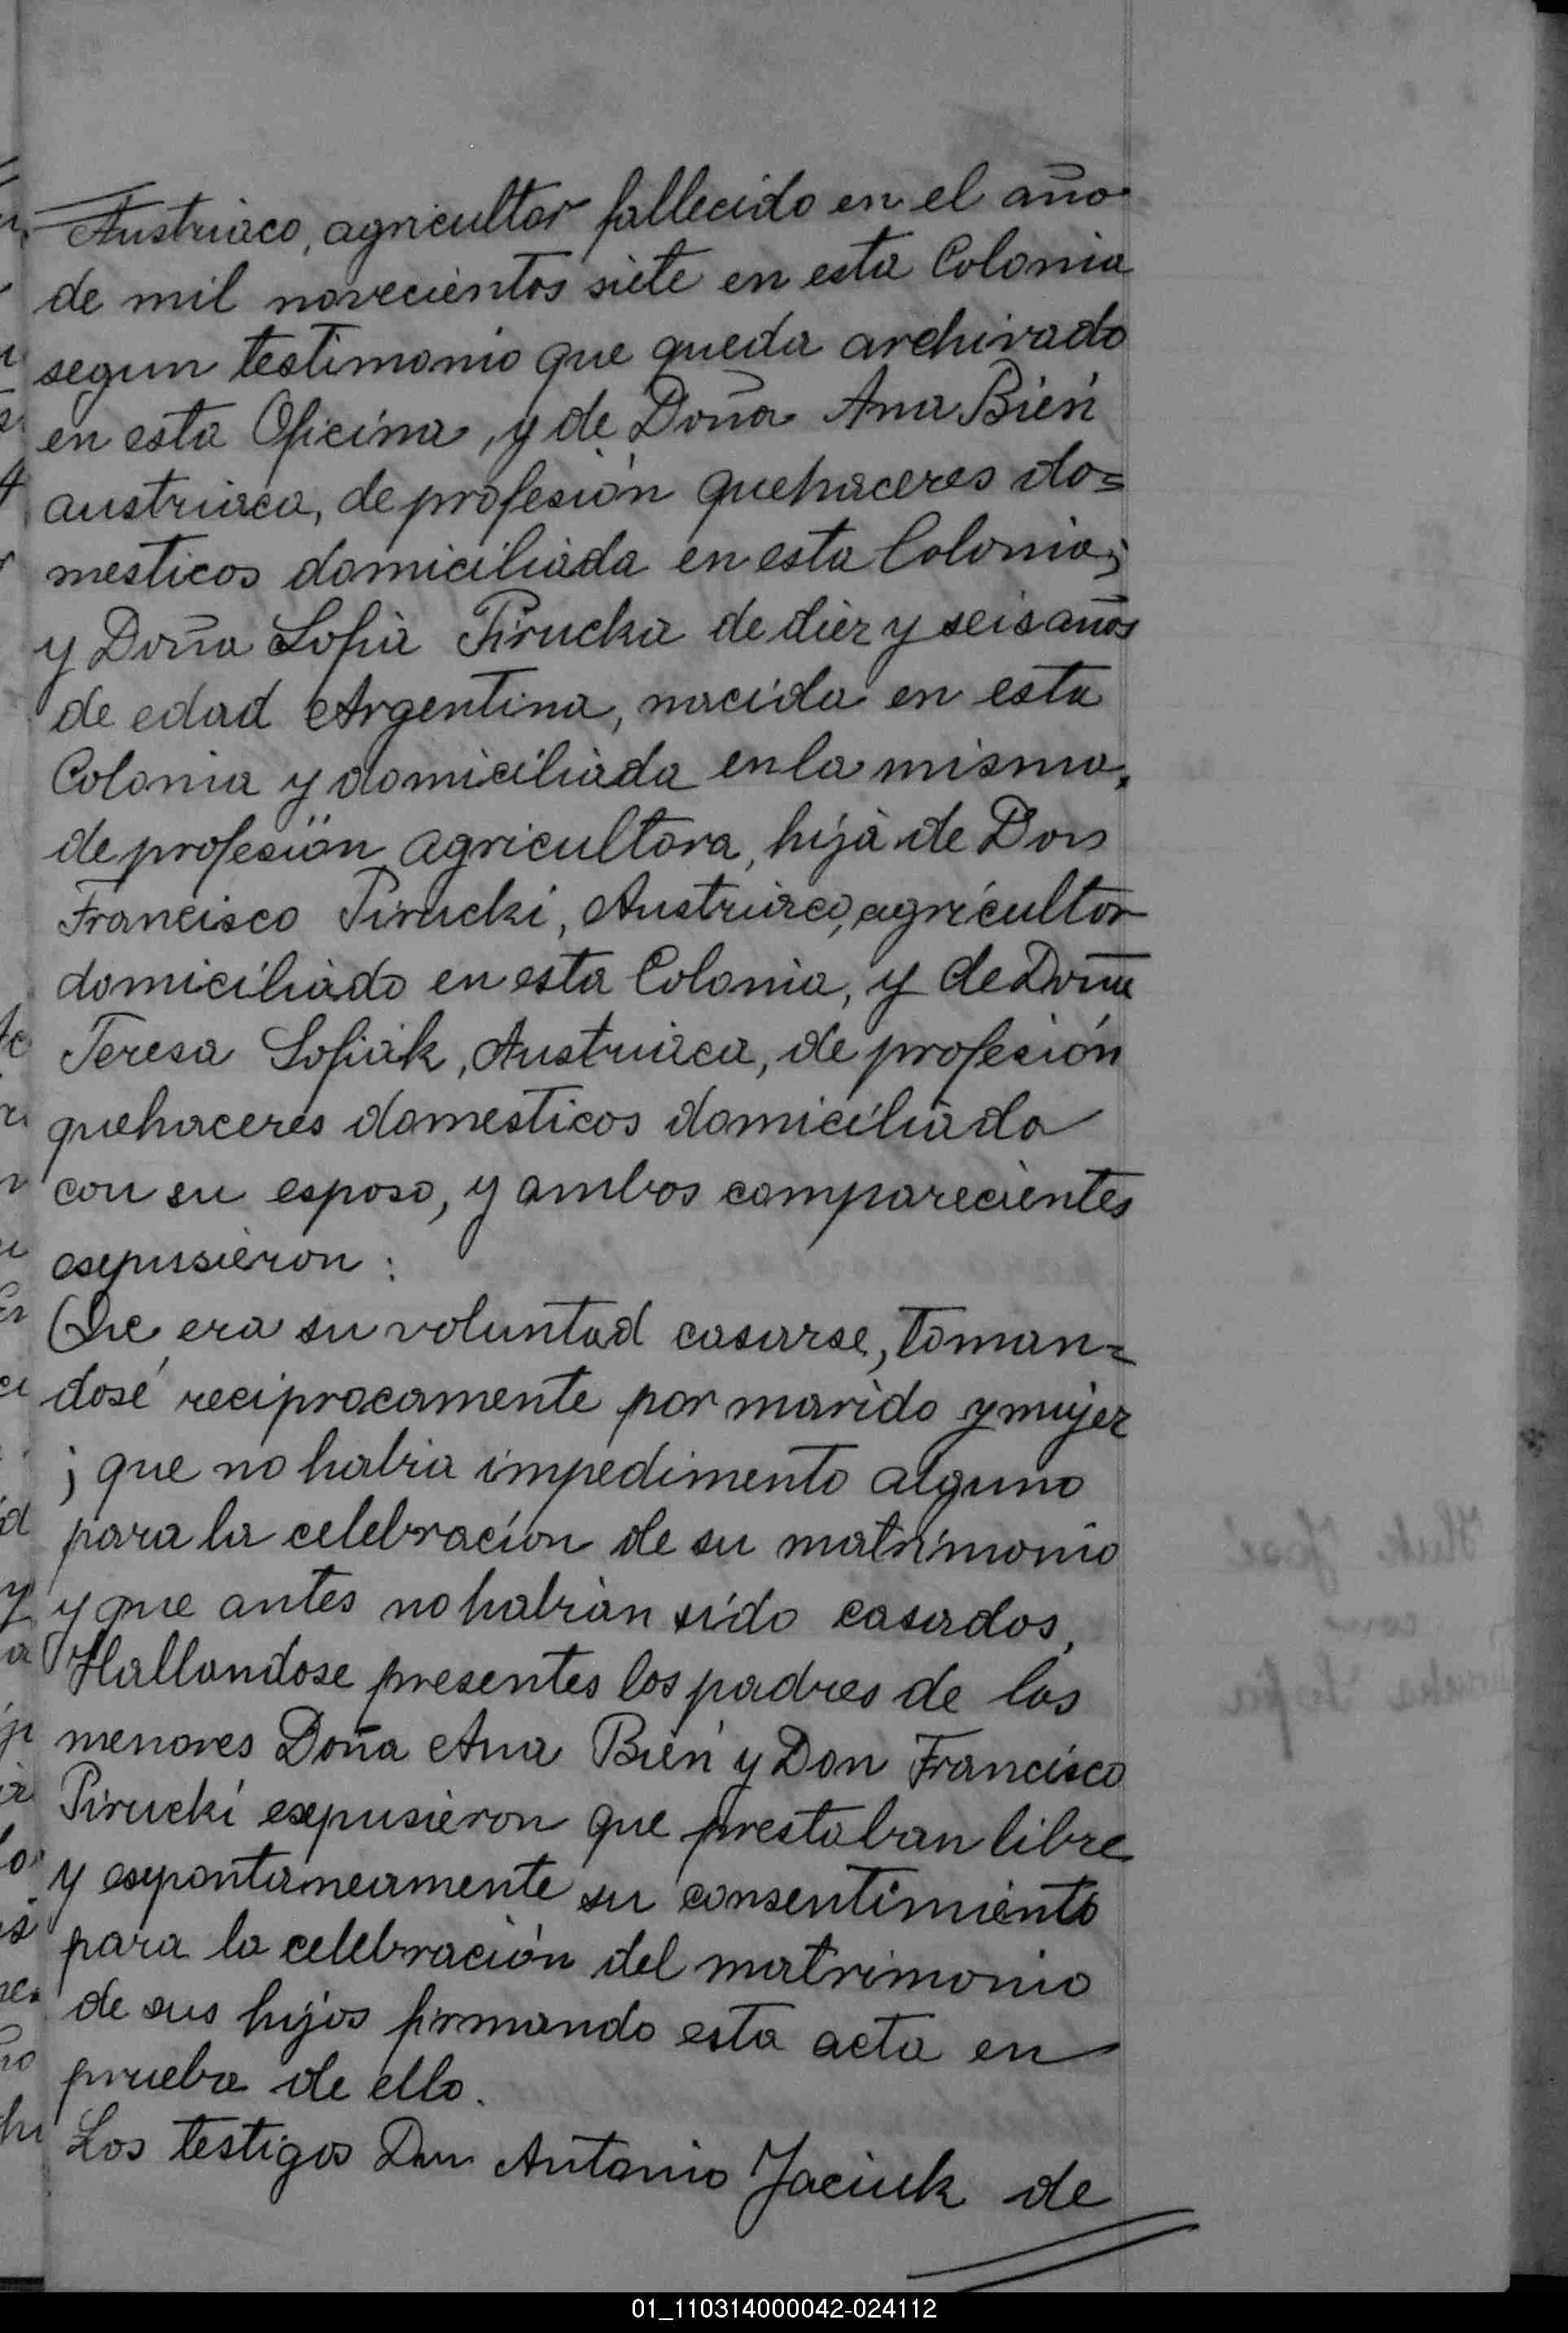 Austriaco, agricultor fallecido en el año
de mil novecientos siete en esta Colonia
segun testimonio que queda archivado
en esta Oficina, y de Doña Ana Bień
austriaca, de profesión quehaceres do=
mesticos domiciliada en esta Colonia;
y Doña Sofia Pirucka de diez y seis años
de edad Argentina, nacida en esta
Colonia y domiciliada en la misma,
de profesión agricultora, hija de Don
Francisco Pirucki, Austriaco, agricultor
domiciliado en esta Colonia, y de Doña
Teresa Sofiak, Austriaca, de profesión
quehaceres domesticos domiciliada
con su esposo, y ambos comparecientes
expusieron:
Que era su voluntad casarse, toman=
dosé reciprocamente por marido y mujer
; que no habia impedimento alguno
para la celebracion de su matrimonio
y que antes no habian sido casados,
Hallandose presentes los padres de los
menores Doña Ana Bień y Don Francisco
Pirucki expusieron que prestaban libre
y expontaneamente su consentimiento
para la celebración del matrimonio
de sus hijos firmando esta acta en
prueba de ello.
Los testigos Don Antonio Jaciuk de
01_110314000042-024112